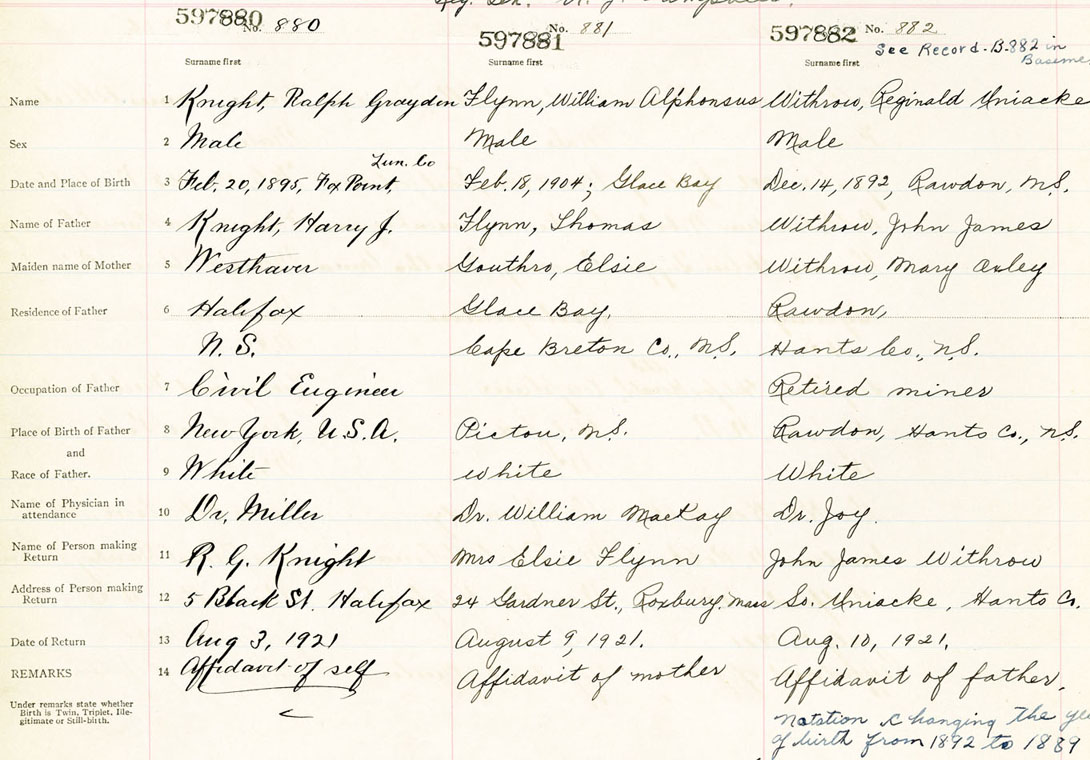 597880 No. 880 597881 No. 881 597882 No. 882
See Record-B-882 in
Surname first Surname first Surname first
Name 1 Knight, Ralph Graydon Flynn, William Alphonsus Withrow, Reginald Uniacke
Sex 2 Male Male Male
Lun. Co
Date and Place of Birth 3 Feb. 20, 1895, Fox Point, Feb. 18, 1904; Glace Bay Dec. 14, 1892, Rawdon, N.S.
Name of Father 4 Knight, Harry J. Flynn, Thomas Withrow, John James
Maiden name of Mother 5 Westhaver Gouthro, Elsie Withrow, Mary Oxley
Residence of Father 6 Halifax Glace Bay, Rawdon,
N. S. Cape Breton Co., N.S. Hants Co., N.S.
Occupation of Father 7 Civil Engineer Retired miner
Place of Birth of Father 8 New York, U.S.A. Pictou, N.S. Rawdon, Hants Co., N.S.
and
Race of Father. 9 White white White
Name of Physician in
attendance 10 Dr. Miller Dr. William MacKay Dr. Joy.
Name of Person making
Return 11 R. G. Knight Mrs Elsie Flynn John James Withrow
Address of Person making
Return 12 5 Black St. Halifax 24 Gardner St., Roxbury, Mass So. Uniacke, Hants Co.
Date of Return 13 Aug 3, 1921 August 9, 1921. Aug. 10, 1921.
REMARKS 14 Affidavit of self Affidavit of mother Affidavit of father.
Under remarks state whether
Birth is Twin, Triplet, Ille-
gitimate or Still-birth.
notation changing the
of birth from 1892 to 1889